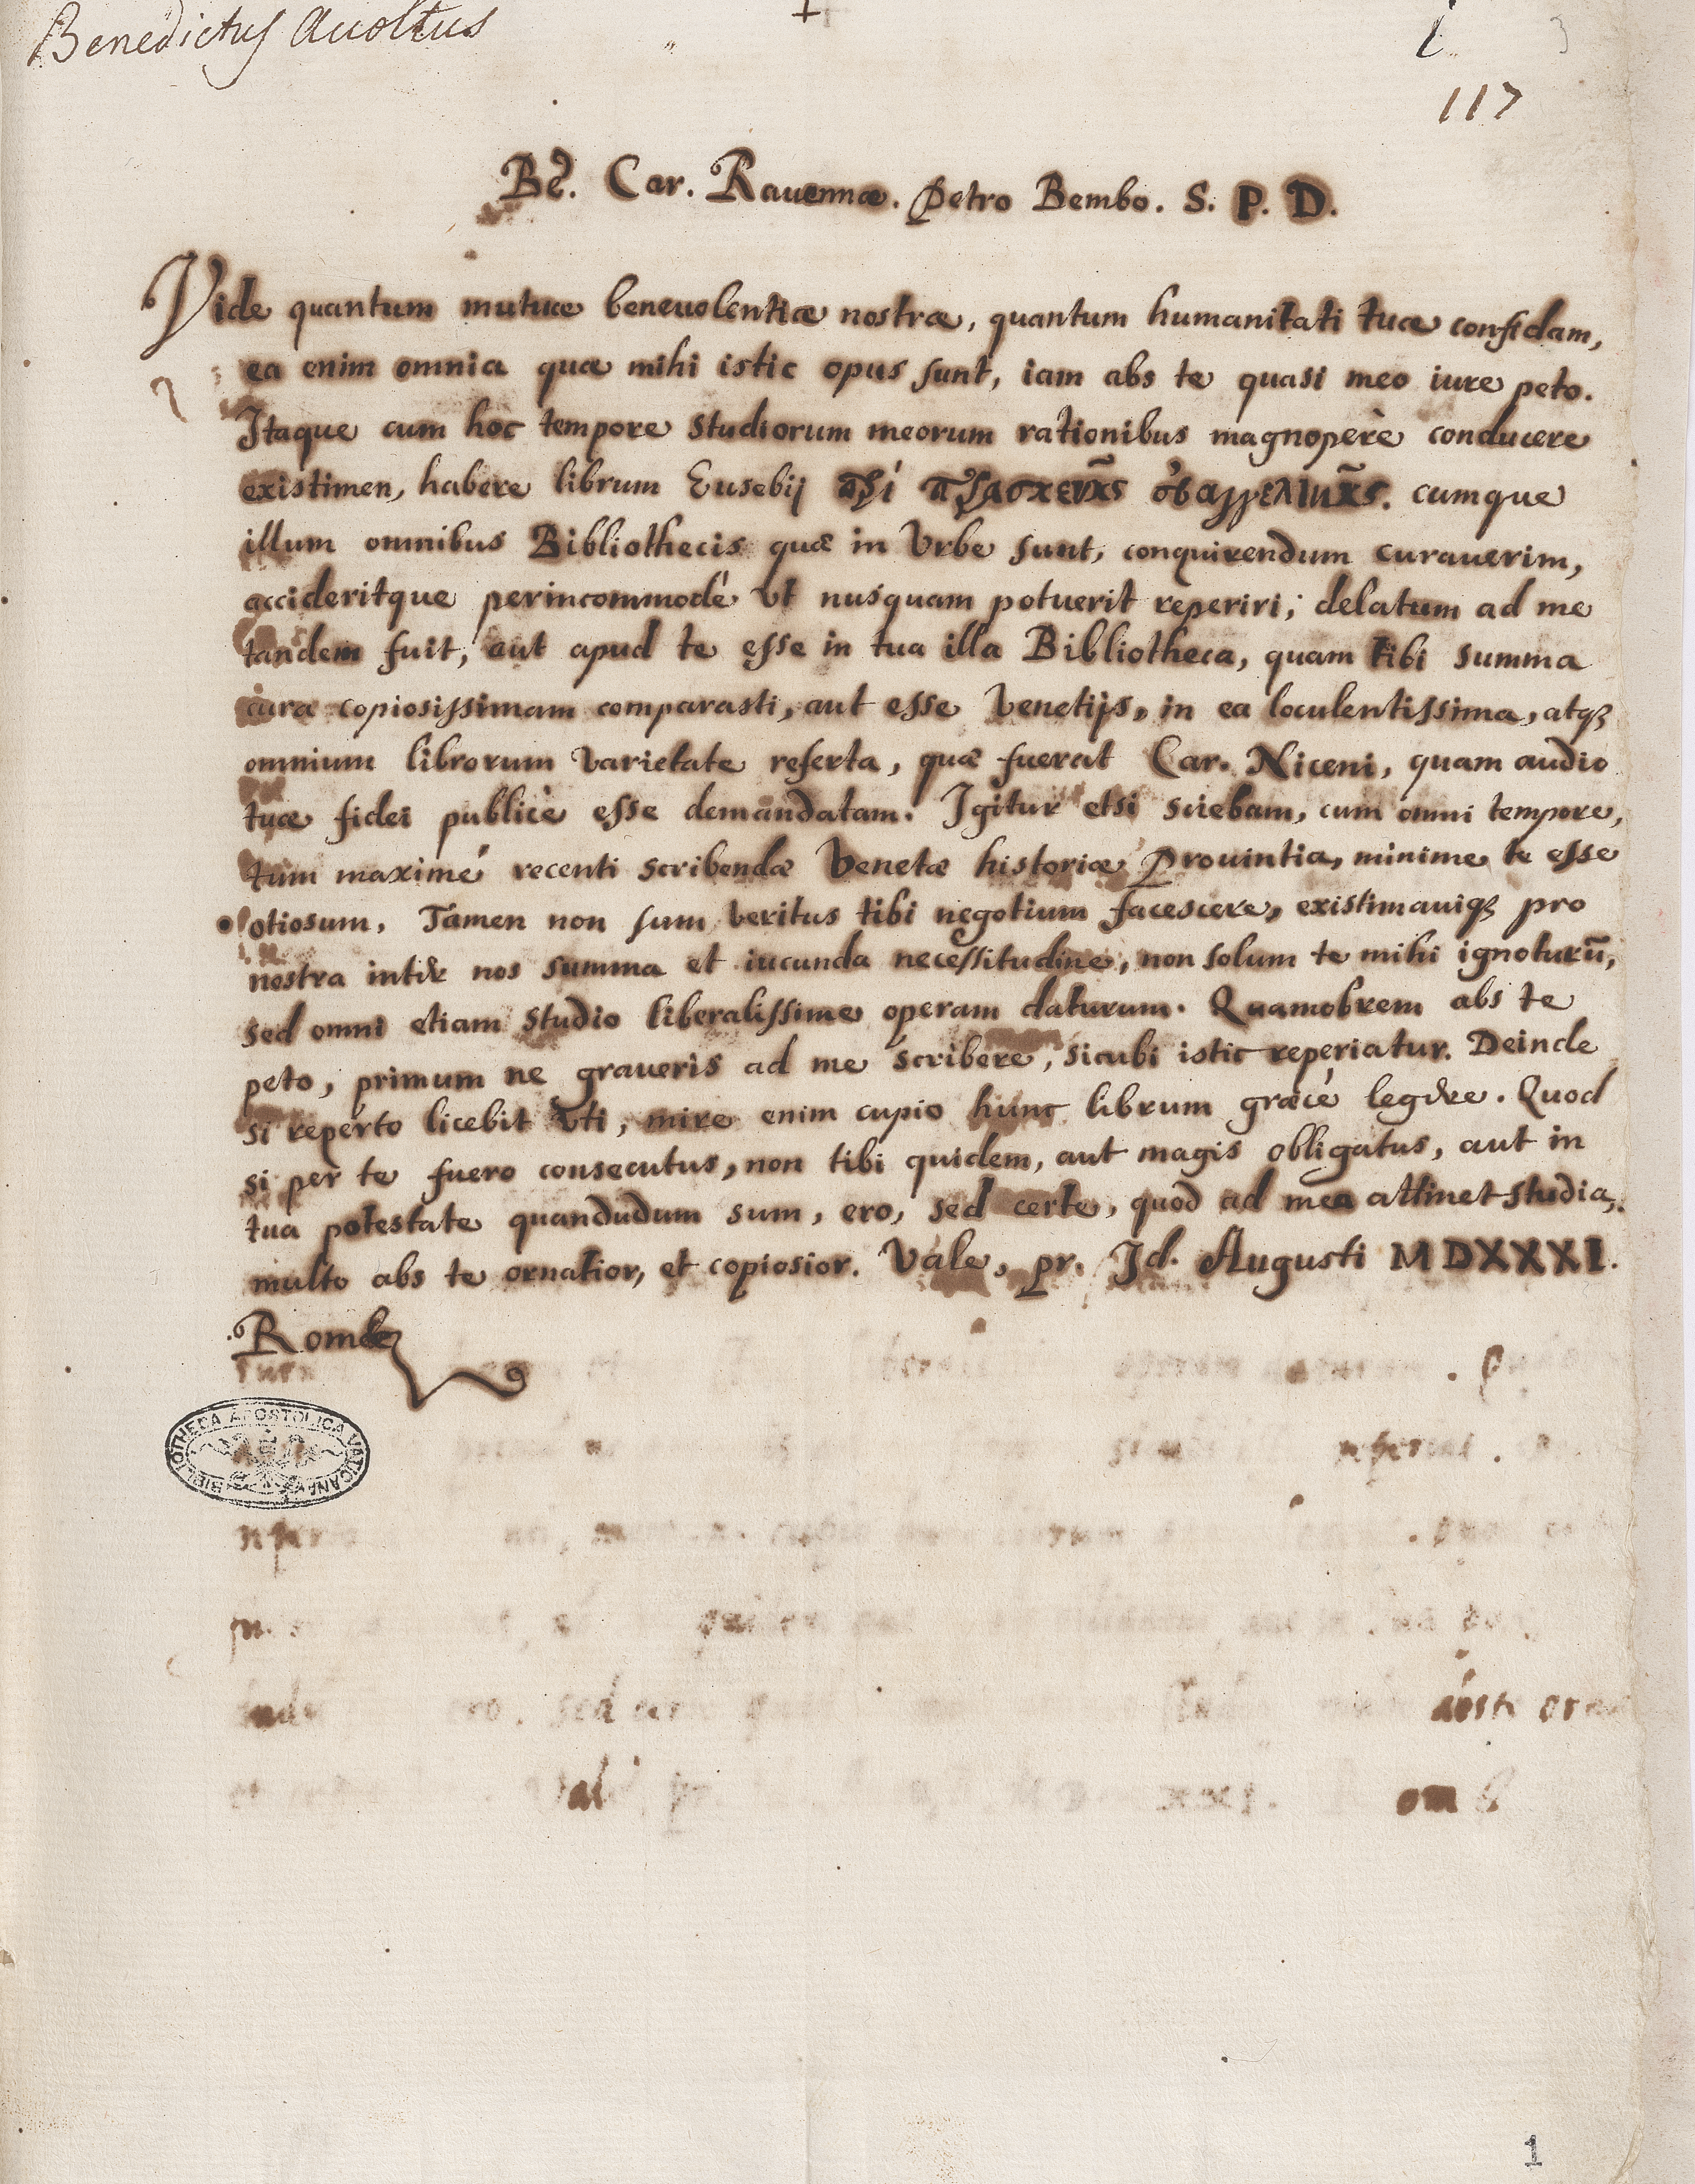 Benedictus Accoltus
117
Be. Car. Rauennæ. Petro Bembo. S. P. D.
Vide quantum mutuæ beneuolentiæ nostræ, quantum humanitati tuæ confidam,
ea enim omnia quæ mihi istic opus sunt, iam abs te quasi meo iure peto.
Itaque cum hoc tempore studiorum meorum rationibus magnoperè conducere
existimen, habere librum Eusebij cumque
illum omnibus Bibliothecis quæ in Vrbe sunt, conquirendum curauerim,
accideritque perincommodé vt nusquam potuerit reperiri; delatum ad me
tandem fuit, aut apud te esse in tua illa Bibliotheca, quam tibi summa
cura copiosissimam comparasti, aut esse Venetijs, in ea loculentissima, atqȝ
omnium librorum varietate referta, quæ fuerat Car. Niceni, quam audio
tuæ fidei publicè esse demandatam. Igitur etsi sciebam, cum omni tempore,
tum maximé recenti scribendæ Venetæ historiæ Prouintia, minime te esse
otiosum. Tamen non sum veritus tibi negotium facescere, existimauiqȝ pro
nostra inter nos summa et iucunda necessitudine, non solum te mihi ignoturū,
sed omni etiam studio liberalissime operam daturum. Quamobrem abs te
peto, primum ne graueris ad me scribere, sicubi istic reperiatur. Deinde
si reperto licebit vti, mire enim cupio hunc librum græcé legere. Quod
si per te fuero consecutus, non tibi quidem, aut magis obligatus, aut in
tua potestate quandudum sum, ero, sed certe, quod ad mea attinet studia,
multo abs te ornatior, et copiosior. Vale, pr. Id. Augusti MDXXXI.
Romæ
BIBLIOTHECA APOSTOLICA VATICANA
1